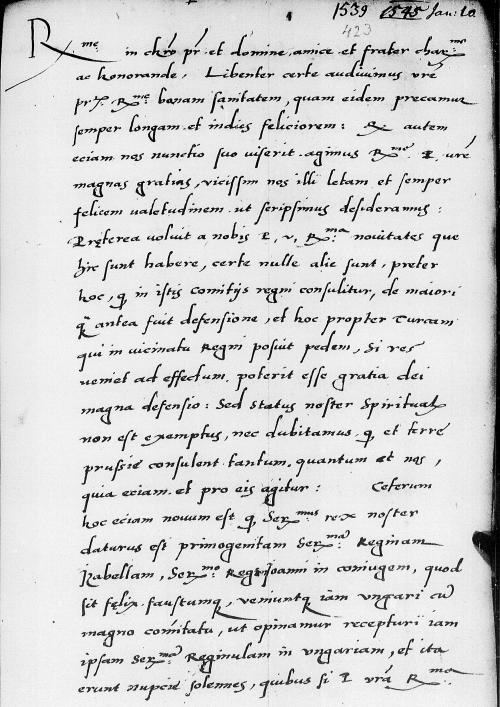 1539 1545 Jan: 10
423
R.me in chro pr. et domine, amice et frater char.me
ac honorande, Libenter certe audivimus vre
pr.t. R.me bonam sanitatem, quam eidem precamur
semper longam et indies feliciorem: autem
eciam nos nuncio suo viserit agimus R.me P. vre
magnas gratias, vicissim nos illi letam et semper
felicem valetudinem ut scripsimus desideramus:
Pręterea voluit a nobis P. v. R.ma novitates que
hic sunt habere, certe nulle alie sunt, preter
hoc, q in istis comitijs regni consulitur, de maiori
q antea fuit defensione, et hoc propter Turcam
qui in vicinatu Regni posuit pedem, Si res
veniet ad effectum poterit esse gratia dei
magna defensio: Sed status noster Spiritual
non est exemptus, nec dubitamus q et terre
prussie consulent tantum quantum et nos,
quia eciam et pro eis agitur: Ceterum
hoc eciam novum est q Ser.mus rex noster
daturus est primogenitam Ser.ma Reginam
Izabellam, Ser.mo Regi Joanni in coniugem, quod
sit fęlix faustumq, veniuntq iam ungari cu
magno comitatu, ut opinamur recepturi iam
ipsam Ser.ma Regimulam in ungariam, et ita
erunt nupcie solemnes, quibus si P. vra R.ma